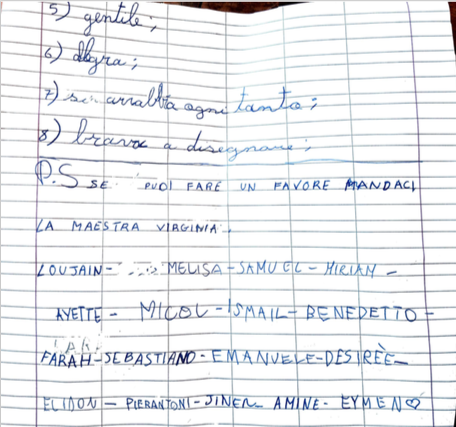 5) gentile;
6) allegra;
7) si arrabbia ogni tanto;
8) brava a disegnare;
P.S SE PUOI FARE UN FAVORE MANDACI
LA MAESTRA VIRGINIA.
LOUJAIN - MELISA - SAMUEL - MIRIAM -
AYETTE - MICOL - ISMAIL - BENEDETTO -
FARAH - SEBASTIANO - EMANUELE - DESIRÈE -
ELIDON - PIERANTONI - JINER - AMINE - EYMEN ♡